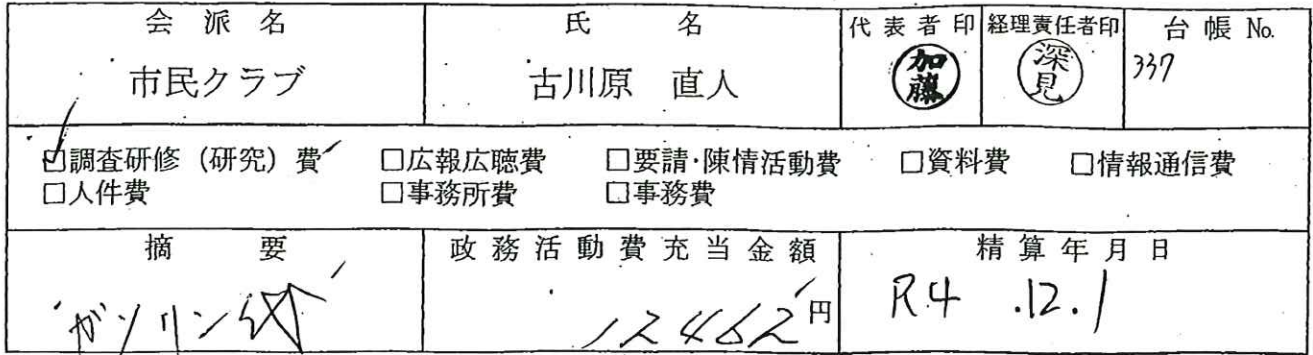 会派名 氏名 代表者印 経理責任者印 台帳No.
市民クラブ 古川原 直人 加藤 深見 337
☑調査研修(研究)費 □広報広聴費 □要請・陳情活動費 □資料費 □情報通信費
□人件費 □事務所費 □事務費
摘要 政務活動費充当金額 精算年月日
ガソリン代 12462円 R4.12.1